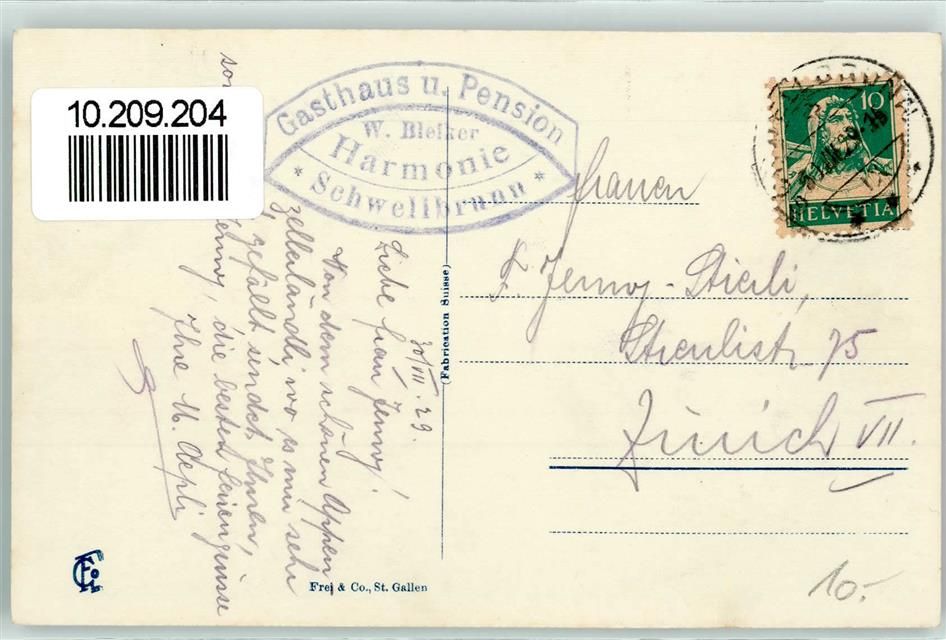 10.209.204
Gasthaus u. Pension
W. Bleiker
Harmonie
* Schwellbrunn *
10
HELVETIA
30/VII. 29.
Liebe Frau Jenny!
Von dem schönen Appen
zellerländli wo es mir sehr
gefällt sendet Ihnen,
Jenny, die besten Feriengrüsse
Ihre M. Aepli
Frauen
F. Jenny-Stierli,
75
Zürich VII.
(Fabrication Suisse)
Frei & Co., St. Gallen
10.-